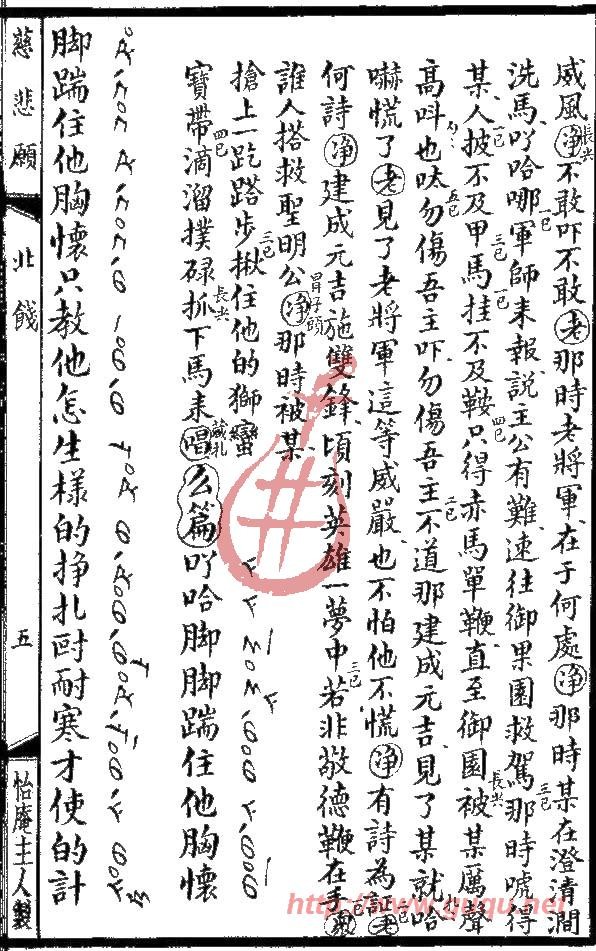 威風淨不敢吓不敢老那時老將軍在于何處淨那時某在澄清澗
洗馬吖哈哪軍師来報說主公有難速往御果園救駕那時唬得
某人披不及甲馬挂不及鞍只得赤馬單鞭直至御園被某厲聲
高叫也呔勿傷吾主吓勿傷吾主不道那建成元吉見了某就哈
嚇慌了老見了老將軍這等威嚴也不怕他不慌淨有詩為証老
何詩淨建成元吉施雙鋒頃刻英雄一夢中若非敬德鞭在手
誰人搭救聖明公淨那時被某
搶上一趷踏步揪住他的獅蠻
寶帶滴溜撲碌抓下馬来唱么篇吖哈脚脚踹住他胸懷
脚踹住他胸懷只教他怎生樣的挣扎回耐寒才使的計
慈悲願
北餞
五
怡庵主人製
http://www.guqu.net